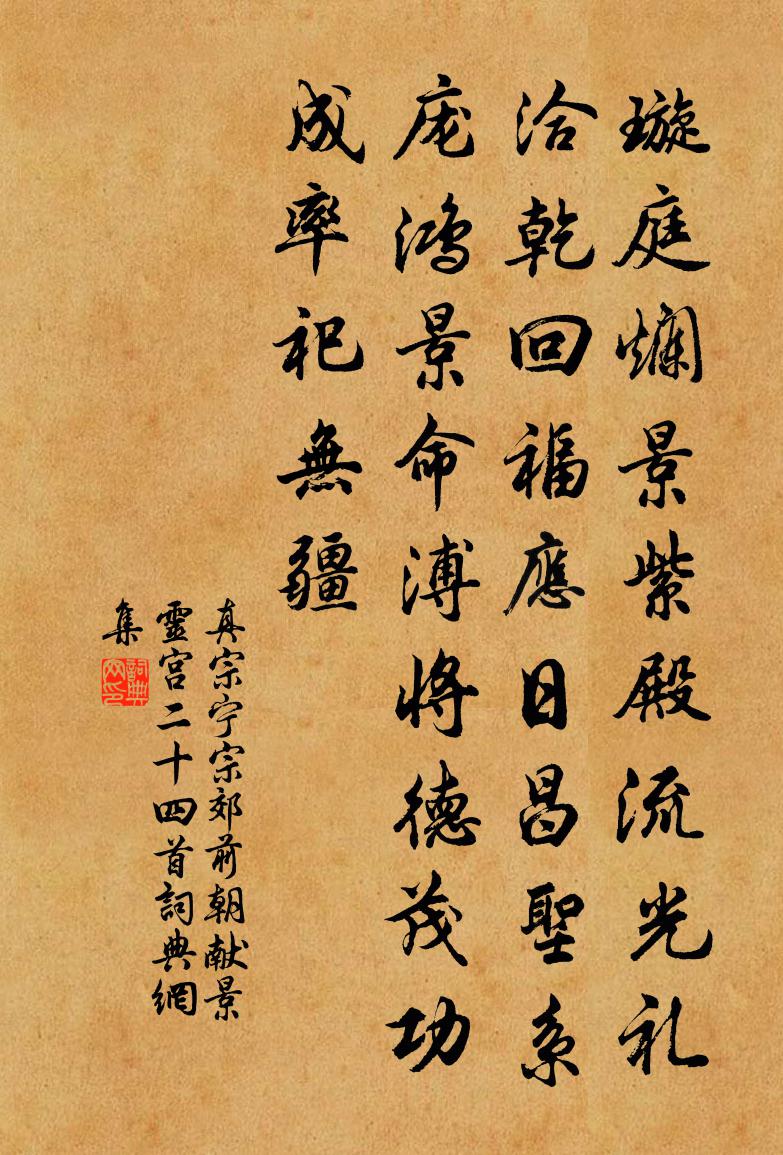 璇庭爛景紫殿流光礼
洽乾回福應日昌聖系
庞鴻景命溥将德茂功
成率祀無疆
真宗宁宗郊前朝献景
靈宫二十四首詞典網
集
詞典
网印